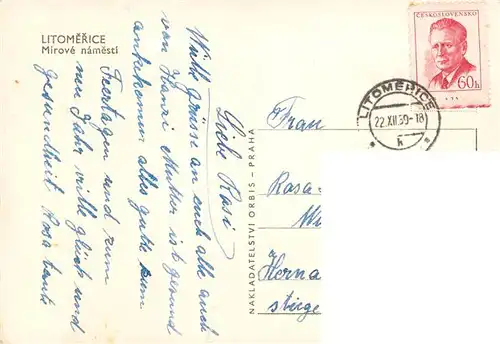 LITOMĚŘICE
Mírové náměstí
Liebe Rasi
Viele Grüsse an euch alle auch
von Hansi Mutter ist gesund
ankekomen alles gute zum
Feiertagen und zum
neu Jahr viele glück und
gesundheit Rosa tante
NAKLADATELSTVÍ ORBIS - PRAHA
ČESKOSLOVENSKO
60h
LITOMĚŘICE
22.XII.59-18
k
Frau
Rasa-
Horna